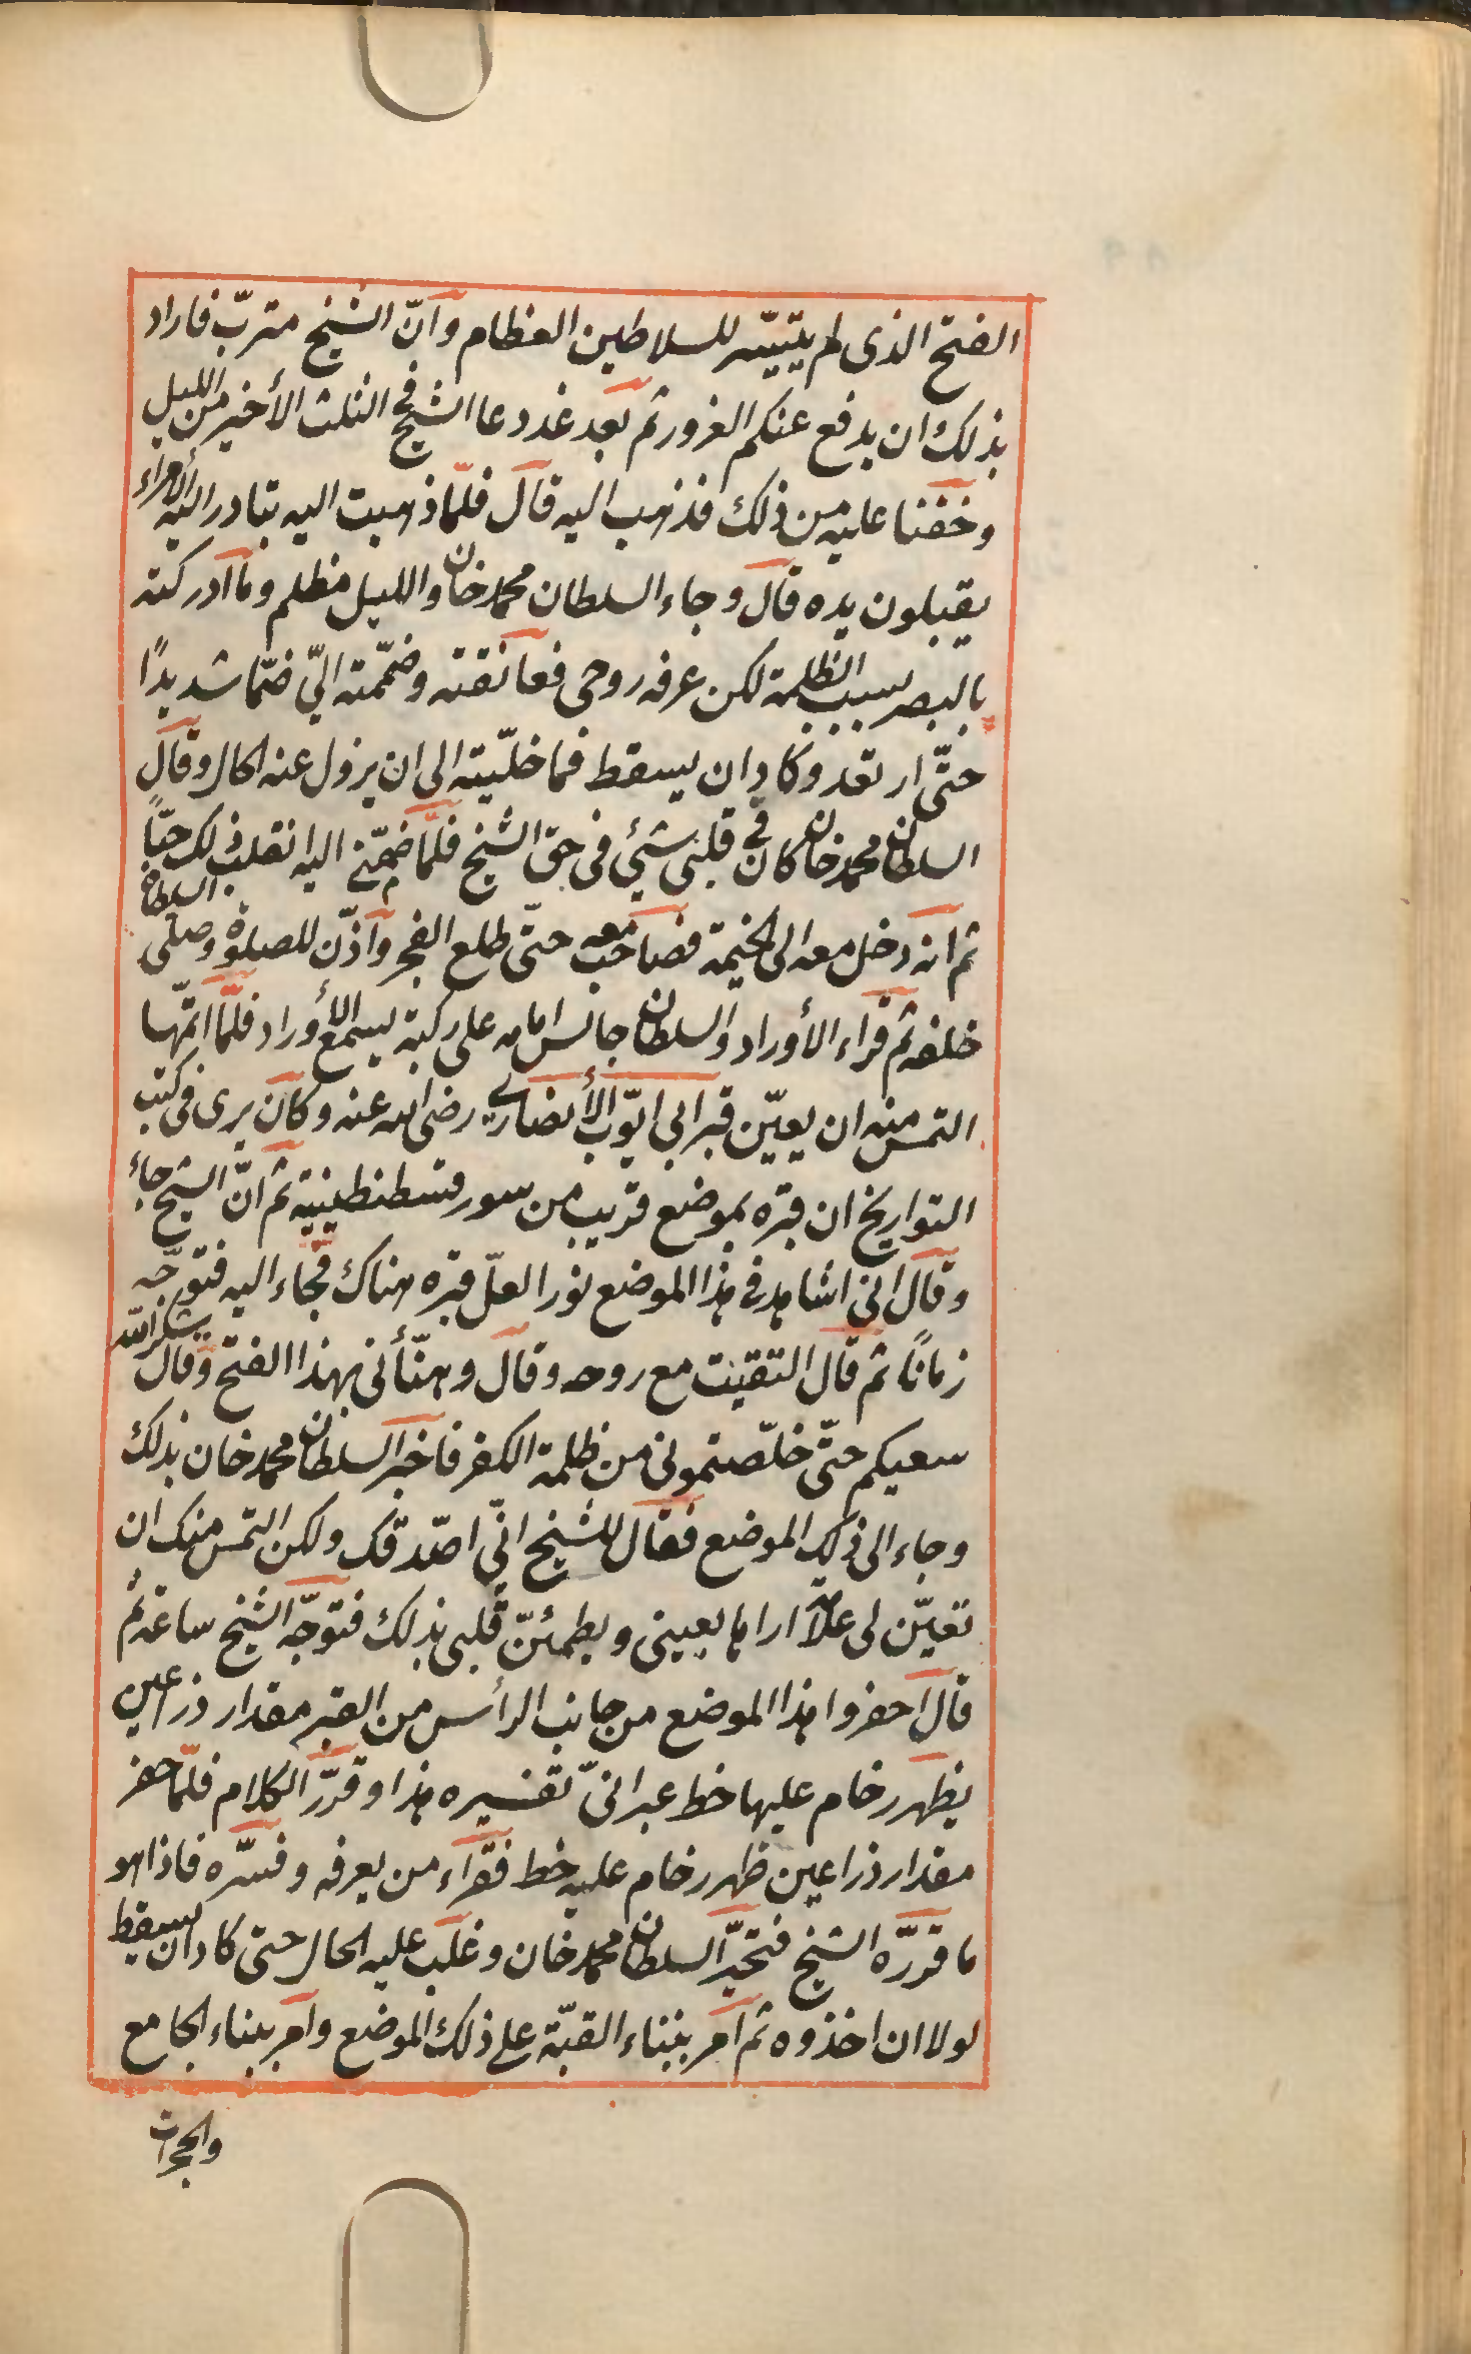 الفتح الذى لم يتيسّر للسلاطين العظام وانّ الشيخ متربّ فاراد
بذلك ان يدفع عنكم الغرور ثم بعد غد دعا الشيخ فى الثلث الأخير من الليل
وخفنا عليه من ذلك فذهب اليه قال فلمّا ذهبت اليه يتبادر اليه الأمراء
يقبلون يده قال وجاء السلطان محمد خان والليل مظلم وما ادركته
بالبصر بسبب الظلمة لكن عرفه روحى فعانقته وضمّمته الىّ ضمّا شديدًا
حتّى ارتعد وكاد ان يسقط فما خلّيته الى ان يزول عنه الحال وقال
السلطان محمد خان كان فى قلبى شئ فى حق الشيخ فلمّا ضمّنى اليه انقلب ذلك حبّاً
ثم انه دخل معه الى الخيمة فصاحب معه حتّى طلع الفجر وأذّن للصلوة وصلّى السلطان
خلفه ثم قراء الأوراد والسلطان جالس امامه على ركبته يسمع الأوراد فلمّا اتمّها
التمس منه ان يعيّن قبر ابى ايّوب الأنصارى رضى الله عنه وكان يرى فى كتب
التواريخ ان قبره بموضع قريب من سور قسطنطينية ثم انّ الشيخ جاء
وقال انى اشاهد فى هذا الموضع نورا لعلّ قبره هناك فجاء اليه فتوجّه
زمانًا ثم قال التقيت مع روحه وقال وهنّأنى بهذا الفتح وقال شكر الله
سعيكم حتّى خلّصتمونى من ظلمة الكفر فاخبر السلطان محمد خان بذلك
وجاء الى ذلك الموضع فقال للشيخ انّى اصدّقك ولكن التمس منك ان
تعيّن لى علامة اراها بعينى ويطمئنّ قلبى بذلك فتوجّه الشيخ ساعة ثم
قال احفروا هذا الموضع من جانب الرأس من القبر مقدار ذراعين
يظهر رخام عليها خط عبرانىّ تفسيره هذا وقرّر الكلام فلمّا حفر
مقدار ذراعين ظهر رخام عليه خط فقراء من يعرفه وفسّره فاذا هو
ما قرّره الشيخ فتحيّر السلطان محمد خان وغلب عليه الحال حتى كاد ان يسقط
لولا ان اخذوه ثم امر ببناء القبّة على ذلك الموضع وامر ببناء الجامع
والحجرات